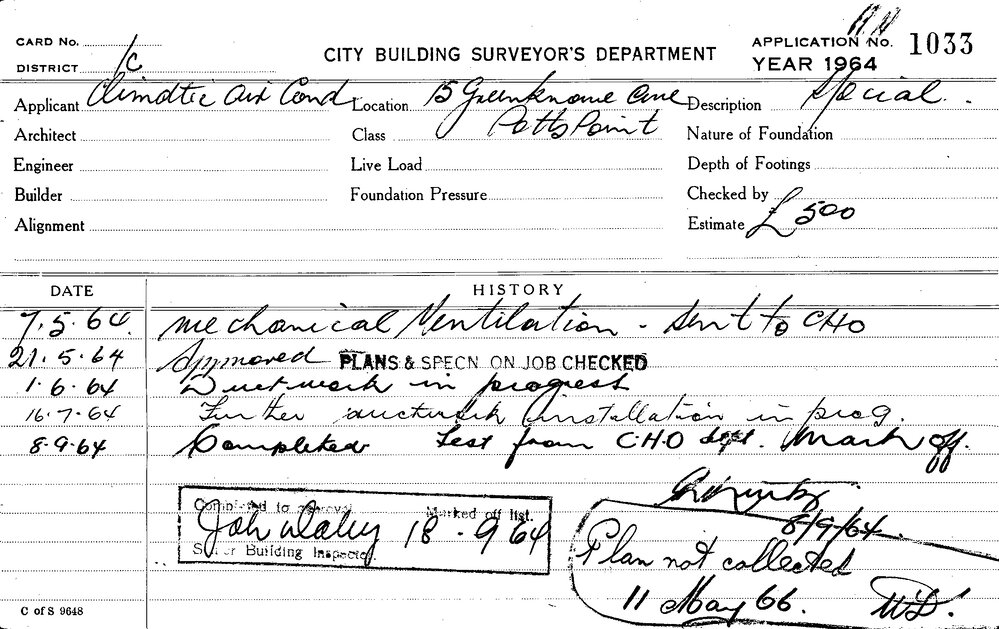 CARD No.
DISTRICT 1c
CITY BUILDING SURVEYOR'S DEPARTMENT
APPLICATION No. 1033
YEAR 1964
Applicant Climatic Air Cond Location 15 Greenknowe Ave Description Special.
Architect Class Potts Point Nature of Foundation
Engineer Live Load Depth of Footings
Builder Foundation Pressure Checked by
Alignment Estimate £500
DATE HISTORY
7.5.64. Mechanical Ventilation - Sent to CHO
21.5.64 Approved PLANS & SPECN ON JOB CHECKED
1.6.64 Ductwork in progress
16.7.64 Further ductwork installation in prog.
8.9.64 Completed Test from C.H.O dept. Mark off.
8/9/64
Completed to approval Marked off list.
18.9.64
Senior Building Inspector.
Plan not collected
11 May 66.
C of S 9648